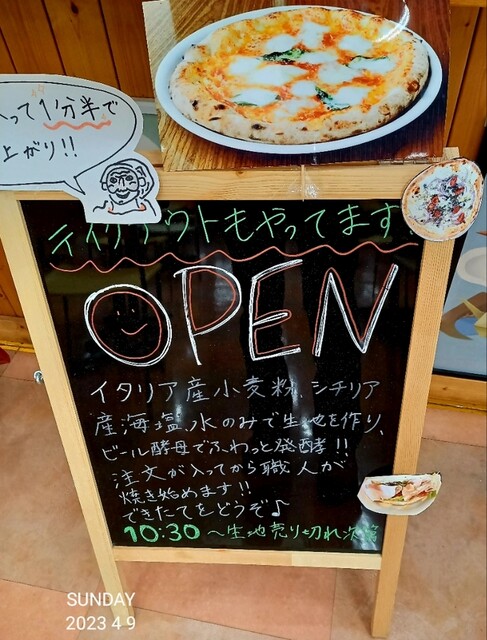 って1分半で
上がり!!
テイクアウトもやってます
OPEN
イタリア産小麦粉、シチリア
産海塩、水のみで生地を作り、
ビール酵母でふわっと発酵!!
注文が入ってから職人が
焼き始めます!!
できたてをどうぞ♪
10:30 ~生地売り切れ次第
SUNDAY
2023 4 9